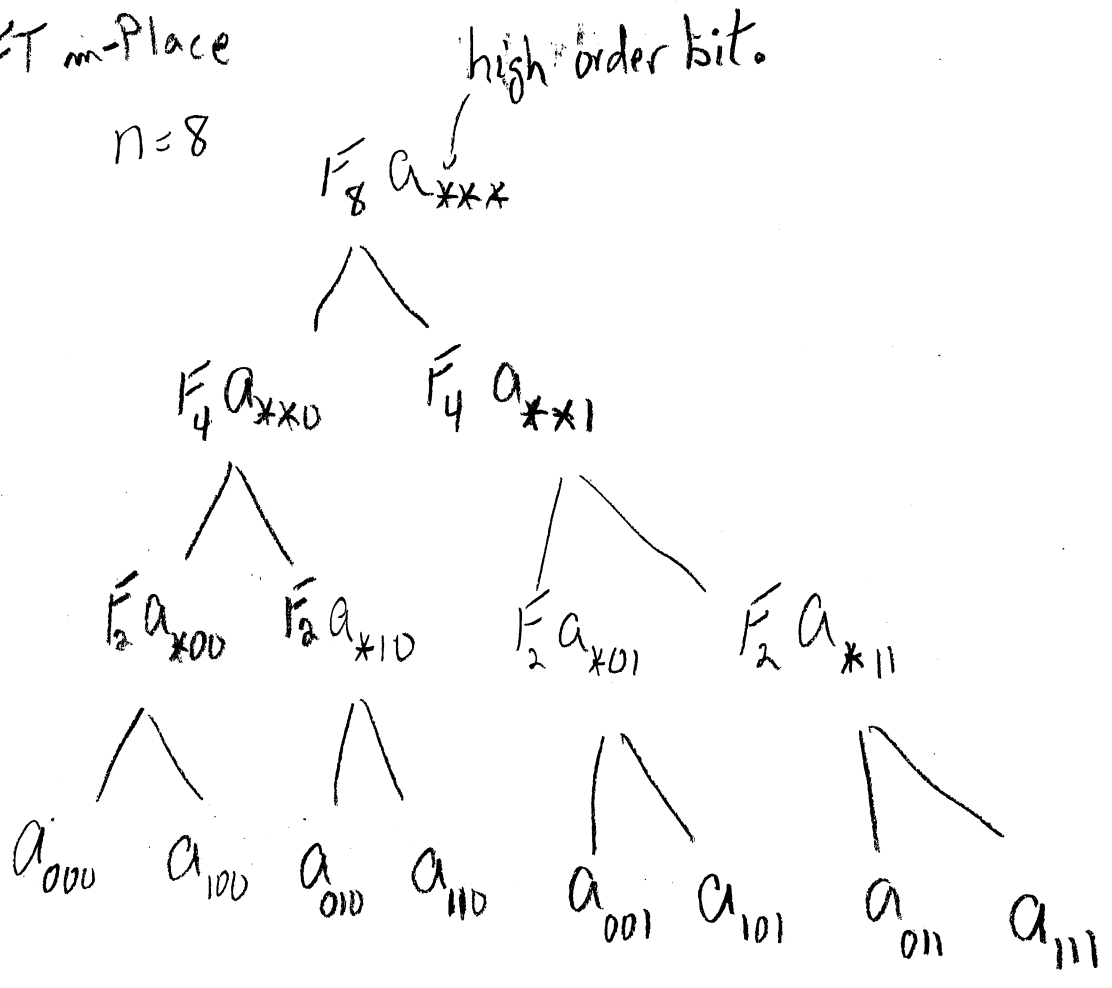 FT in-Place
high order bit.
n=8
F₈ a***
F₄ a**0 F₄ a**1
F₂ a*00 F₂ a*10 F₂ a*01 F₂ a*11
a₀₀₀ a₁₀₀ a₀₁₀ a₁₁₀ a₀₀₁ a₁₀₁ a₀₁₁ a₁₁₁